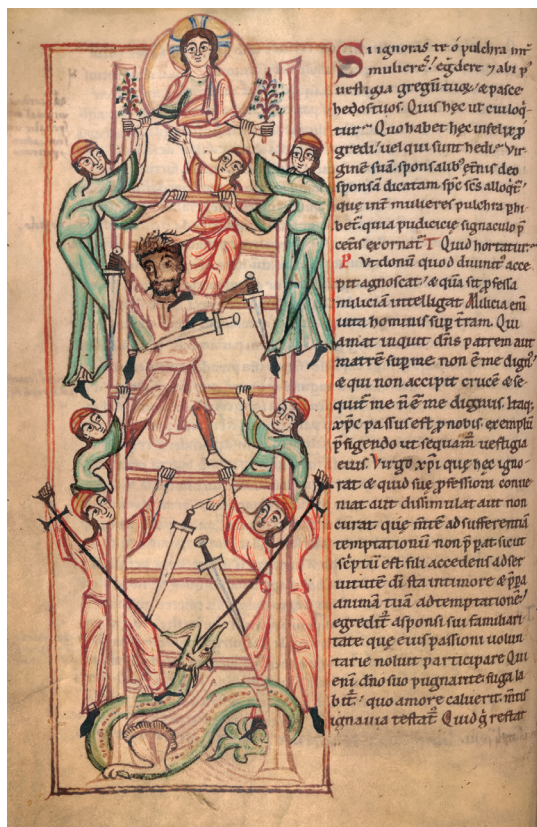 Si ignoras te ó pulchra int̄
muliereſ! egdere ⁊ abi p̄
ueſtigia gregū tuoꝝ / & paſce
hędoſ tuoſ. Quiſ hęc ut cui loq̄
tur
Quo habet hęc
gredi / uel qui ſunt hędi
Vir
ginē ſuā. ſponſalib; deo
ſponſā dicatam. ſp̄c ſc̄ſ alloq̄t̄
que int̄ muliereſ pulchra
bet̄. quia pudicicię ſignaculo p̄
exornat̄. Quid hortatur.
Vt donū quod diuinit᷒ acce
pit agnoſcat / & q̄a ſit p̄feſſa
miliciā intelligat. Milicia enī
uita hominiſ ſup t̄ram. Qui
amat inquit dn̄ſ patrem aut
matrē ſup me. non ē me dign᷒
& qui non accipit crucē & ſe
quit᷒ me n̄ ē me dignuſ. Itaq;
xp̄c paſſuſ eſt p̄ nobiſ. exemplū
p̄figendo ut ſequam᷒ ueſtigia
eiuſ. Virgo xp̄i que hęc igno
rat & quid ſuę p̄feſſioni conue
niat aut diſſimulat aut non
curat. quę m̄tē ad ſufferentiā
temptationū non p̄parat ſicut
ſc̄ptū eſt fili accedenſ ad ſer
uitutē dī ſta in timore & p̄pa
animā tuā ad temptationē /
egredit᷒ a ſponſi ſui familiari
tate. que eiuſ paſſioni uolun
tarie noluit participare. Qui
enī dn̄o ſuo pugnante. fuga la
bit᷒ / quo amore caluerit. īntiſ
ignauia teſtat᷒. Quid ḡ reſtat